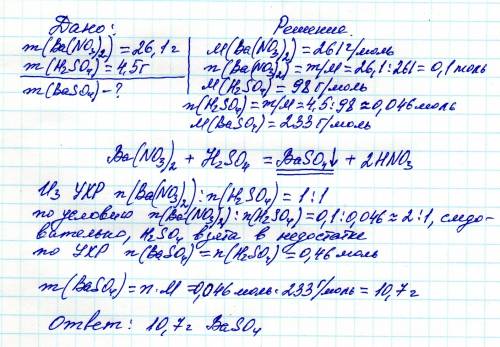 Дано:
m(Ba(NO3)2) = 26,1г
m(H2SO4) = 4,5г
m(BaSO4) - ?
Решение.
M(Ba(NO3)2) = 261г/моль
n(Ba(NO3)2) = m/M = 26,1 : 261 = 0,1 моль
M(H2SO4) = 98 г/моль
n(H2SO4) = m/M = 4,5 : 98 ≈ 0,046моль
M(BaSO4) = 233 г/моль
Ba(NO3)2 + H2SO4 = BaSO4↓ + 2HNO3
Из УХР n(Ba(NO3)2) : n(H2SO4) = 1:1
по условию n(Ba(NO3)2) : n(H2SO4) = 0,1 : 0,046 ≈ 2:1, следо-
вательно, H2SO4 взята в недостатке
по УХР n(BaSO4) = n(H2SO4) = 0,46 моль
m(BaSO4) = n · M = 0,046моль · 233 г/моль = 10,7 г
Ответ: 10,7г BaSO4